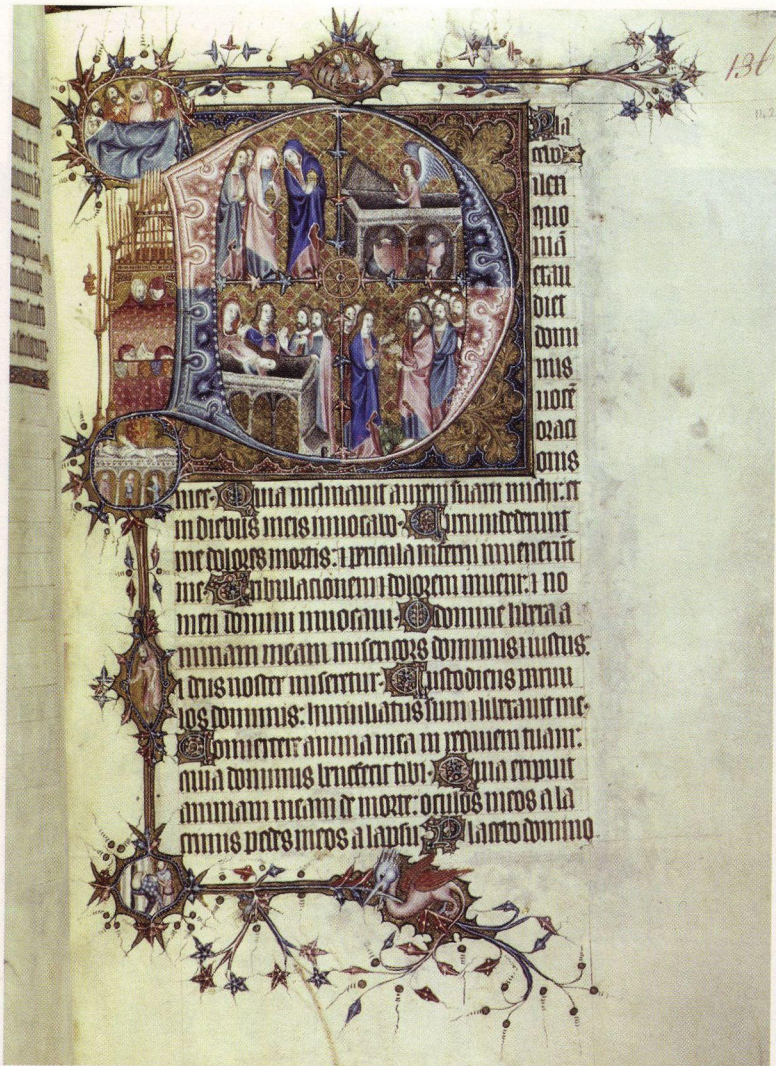 136
Pla
cebo
D ilexi
quo
niā
exau
diet
domi
nus
uocē
oraci
onis
mee. Quia inclinauit aurem suam michi: et
in diebus meis inuocabo. Circumdederunt
me dolores mortis: ⁊ pericula inferni inuenerūt
me. Tribulacionem ⁊ dolorem inueni: ⁊ no
men domini inuocaui. O domine libera a
nimam meam misericors dominus ⁊ iustus:
⁊ deus noster miseretur. Custodiens paruu
los dominus: humiliatus sum ⁊ liberauit me.
Conuertere anima mea in requiem tuam:
quia dominus benefecit tibi. Quia eripuit
animam meam de morte: oculos meos a la
crimis pedes meos a lapsu. Placebo domino